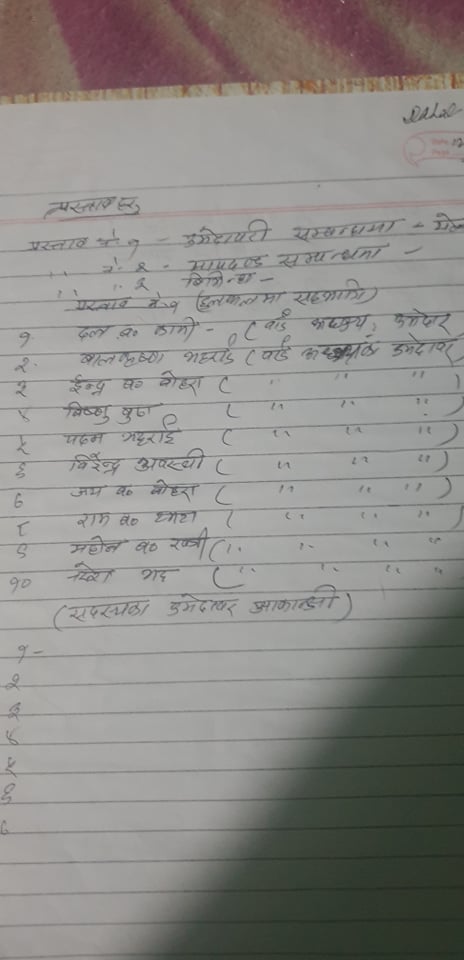 Dahal
प्रस्तावहरु
प्रस्ताव नं. १ - उमेदवारी सम्बन्धमा -
" नं. २ - मापदण्ड सम्बन्धमा -
" " ३ विविध -
प्रस्ताव नं. १ (छलफलमा सहभागि)
१. दल ब० कामी - (वार्ड अध्यक्ष, उमेदवार
२. बालकृष्ण भट्टराई (वार्ड अध्यक्षका उमेदवार
३ ईन्द्र ब० बोहरा ( " " " )
४ विष्णु बुढा ( " " " )
५ पदम भट्टराई ( " " " )
६ विरेन्द्र अवस्थी ( " " " )
७ जय ब० बोहरा ( " " " )
८ राम ब० ( " " " )
९ ब० खत्री ( " " " "
१० ( " " " " )
(सदस्यका उमेदवार आकांक्षी)
१ -
२
३
४
५
६
७